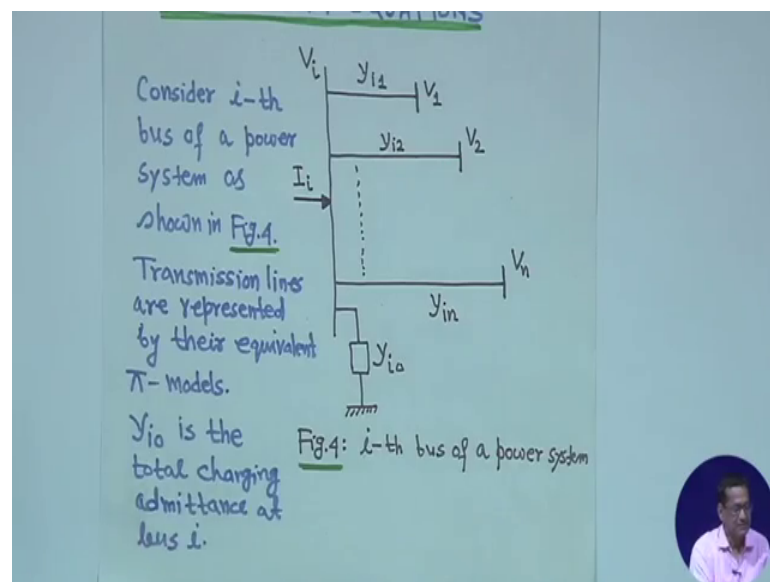 EQUATIONS
Consider i-th
bus of a power
system as
shown in Fig.4.
Transmission lines
are represented
by their equivalent
π-models.
yio is the
total charging
admittance at
bus i.
Vi
yi1
V1
yi2
V2
Ii
Vn
yin
yio
Fig.4: i-th bus of a power system